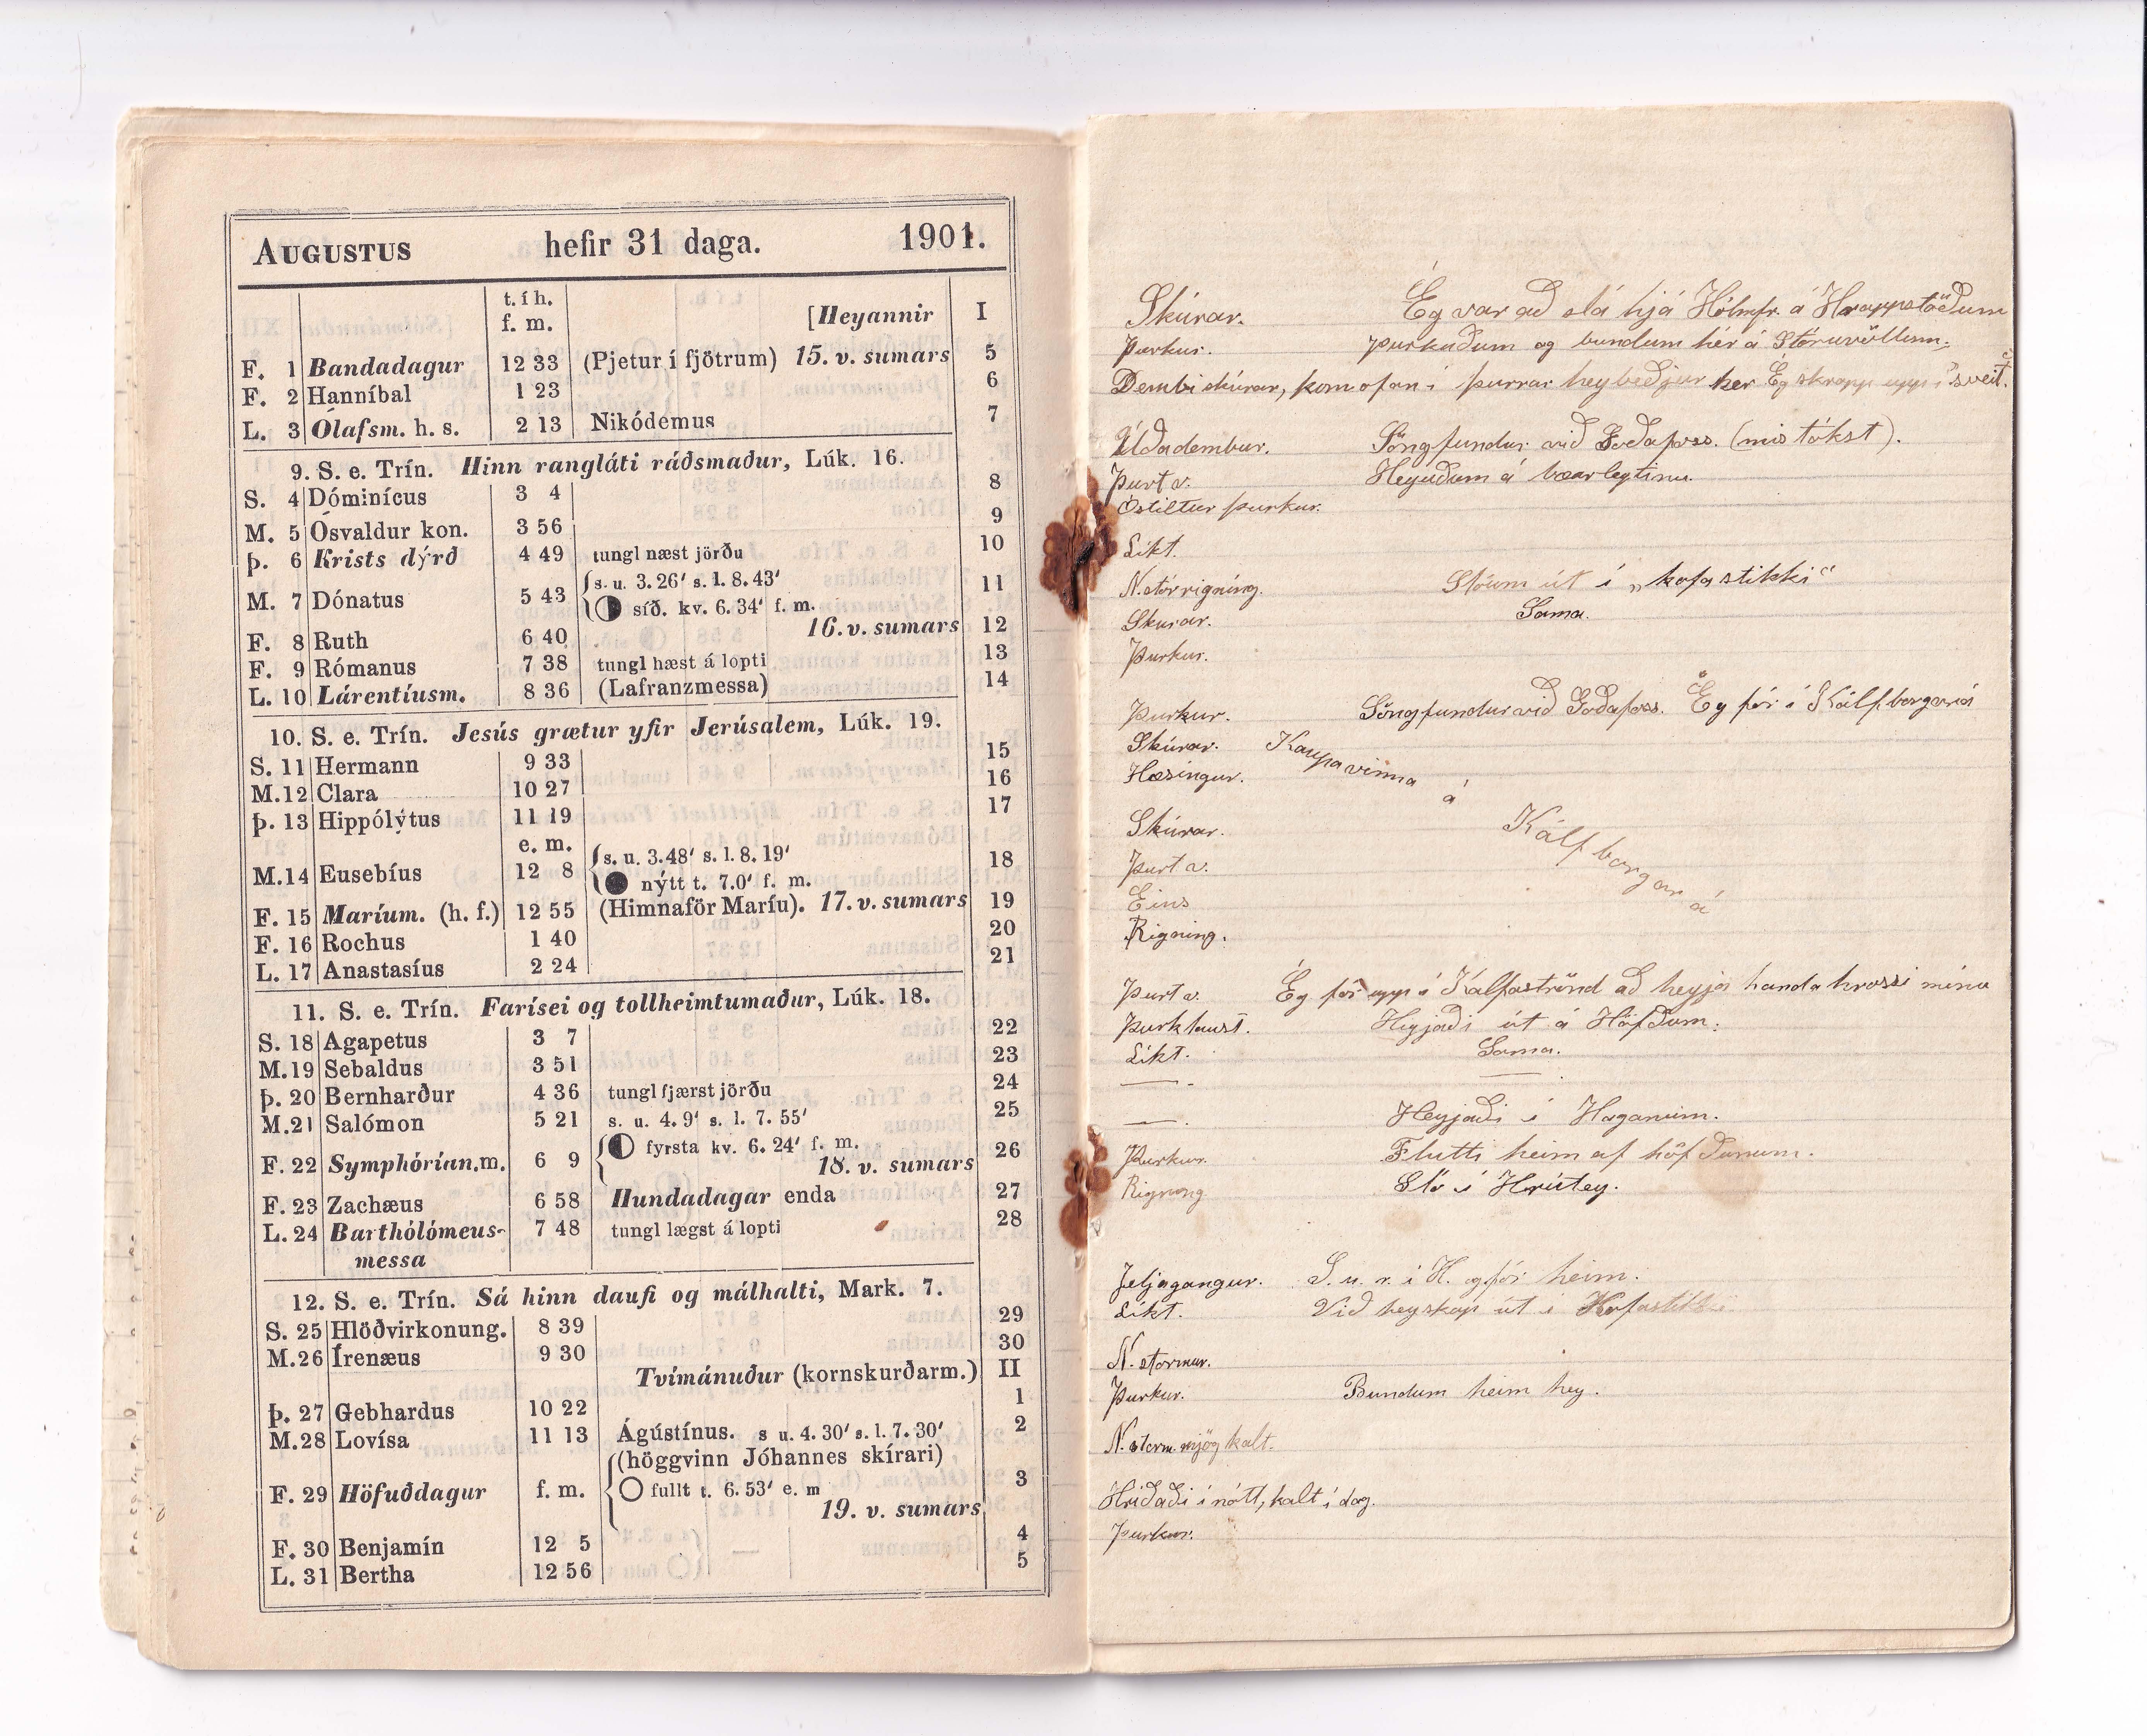 AUGUSTUS hefir 31 daga. 1901.
t. í h.
f. m. [Heyannir I
F. 1 Bandadagur 12 33 (Pjetur í fjötrum) 15. v. sumars 5
F. 2 Hanníbal 1 23 6
L. 3 Ólafsm. h. s. 2 13 Nikódemus 7
9. S. e. Trín. Hinn rangláti ráðsmaður, Lúk. 16.
S. 4 Dóminícus 3 4 8
M. 5 Ósvaldur kon. 3 56 9
Þ. 6 Krists dýrð 4 49 tungl næst jörðu 10
M. 7 Dónatus 5 43 s. u. 3. 26' s. l. 8. 43' 11
síð. kv. 6. 34' f. m.
16. v. sumars
F. 8 Ruth 6 40 12
F. 9 Rómanus 7 38 tungl hæst á lopti 13
L. 10 Lárentíusm. 8 36 (Lafranzmessa) 14
10. S. e. Trín. Jesús grætur yfir Jerúsalem, Lúk. 19.
S. 11 Hermann 9 33 15
M. 12 Clara 10 27 16
Þ. 13 Hippólýtus 11 19 17
e. m.
M. 14 Eusebíus 12 8 s. u. 3. 48' s. l. 8. 19' 18
nýtt t. 7. 0' f. m.
F. 15 Maríum. (h. f.) 12 55 (Himnaför Maríu). 17. v. sumars 19
F. 16 Rochus 1 40 20
L. 17 Anastasíus 2 24 21
11. S. e. Trín. Farísei og tollheimtumaður, Lúk. 18.
S. 18 Agapetus 3 7 22
M. 19 Sebaldus 3 51 23
Þ. 20 Bernharður 4 36 tungl fjærst jörðu 24
M. 21 Salómon 5 21 s. u. 4. 9' s. l. 7. 55' 25
fyrsta kv. 6. 24' f. m.
F. 22 Symphórían.m. 6 9 18. v. sumars 26
F. 23 Zachæus 6 58 Hundadagar enda 27
L. 24 Barthólómeus- 7 48 tungl lægst á lopti 28
messa
12. S. e. Trín. Sá hinn daufi og málhalti, Mark. 7.
S. 25 Hlöðvirkonung. 8 39 29
M. 26 Írenæus 9 30 30
Tvímánuður (kornskurðarm.) II
Þ. 27 Gebhardus 10 22 1
M. 28 Lovísa 11 13 Ágústínus. s u. 4. 30' s. l. 7. 30' 2
(höggvinn Jóhannes skírari)
F. 29 Höfuðdagur f. m. fullt t. 6. 53' e. m 3
19. v. sumars
F. 30 Benjamín 12 5 4
L. 31 Bertha 12 56 5
Skúrar. Ég var að slá hjá Hólmfr. á Hrappstöðum
Þurkur. Þurkuðum og bundum hér á Stóruvöllum.
Dembiskúrar, kom ofan í þurrar heybeðjur hér Ég skrapp upp í sveit.
Úðadembur. Söngfundur við Goðafoss. (mistókst).
Þurt v. Heyuðum á
Óstiltur þurkur.
Líkt.
N. stórrigning. Slóum út í „kofastikki"
Skurar. Sama.
Þurkur.
Þurkur. Söngfundur við Goðafoss. Ég fór í Kálfborgará
Skúrar. Kaupavinna á Kálfborgará
Hæsingur.
Skúrar.
Þurt v.
Eins
Rigning.
Þurt v. Ég fór upp í Kalfaströnd að heyja handa hrossi mínu
Þurklaust. Heyjaði út á Höfðum.
Líkt. Sama.
— . —
— . Heyjaði í Haganum.
Þurkur. Flutti heim af höfðunum.
Rigning Sló í Hrútey.
Jeljagangur. S. u. r. í H. og fór heim.
Líkt. Við heyskap út í Kofastikki
N. stormur.
Þurkur. Bundum heim hey.
N. storm. mjög kalt.
Hríðaði í nótt, kalt í dag.
Þurkur.